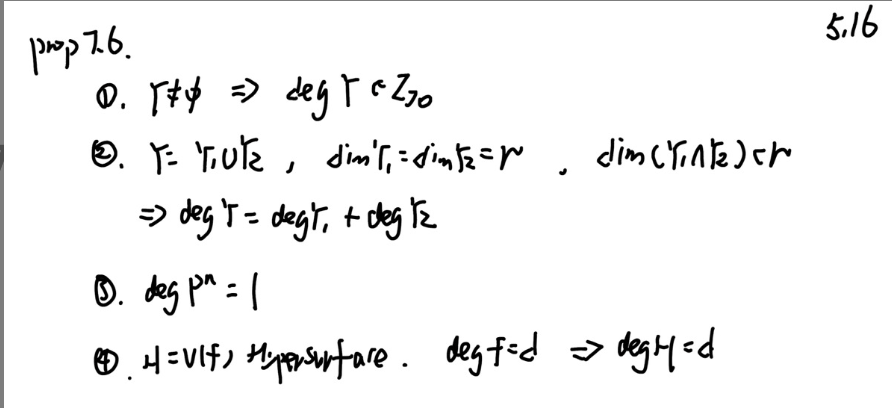 5.16
prop 7.6.
①. Y≠φ ⇒ deg Y ∈ Z>0
②. Y = Y1∪Y2, dim Y1 = dim Y2 = r, dim(Y1∩Y2) < r
⇒ deg Y = deg Y1 + deg Y2
③. deg Pⁿ = 1
④. H = V(f), Hypersurface. deg f = d ⇒ deg H = d